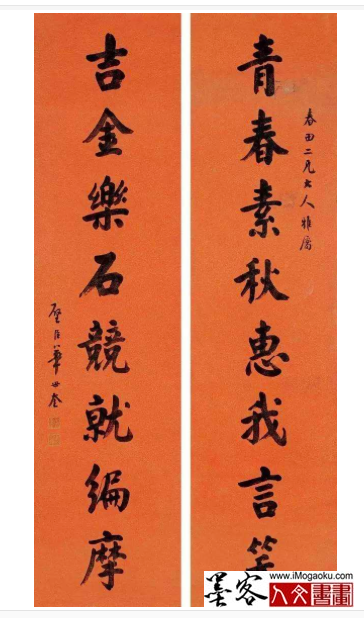 青春素秋惠我言笑
春田二兄大人雅屬
吉金樂石競就編摩
璧臣華世奎
墨客
www.iMogaoku.com
人文書畫